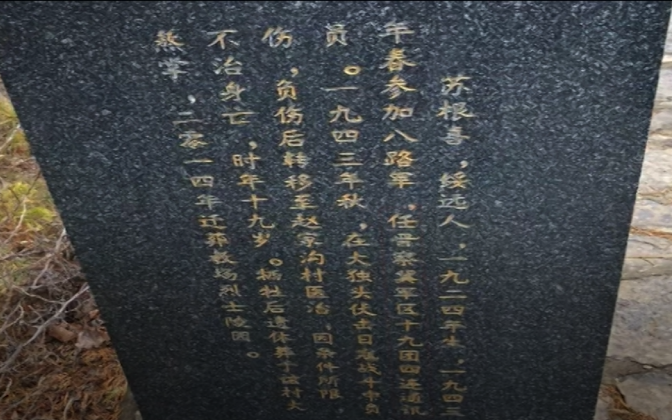 苏根喜，绥远人，一九二四年生，一九四三
年春参加八路军，任晋察冀军区十九团四连通讯
员。一九四三年秋，在大独头伏击日寇战斗中负
伤，负伤后转移至赵家沟村医治，因条件所限，
不治身亡，时年十九岁。牺牲后遗体葬于该村大
熬掌，二零一四年迁葬教场烈士陵园。